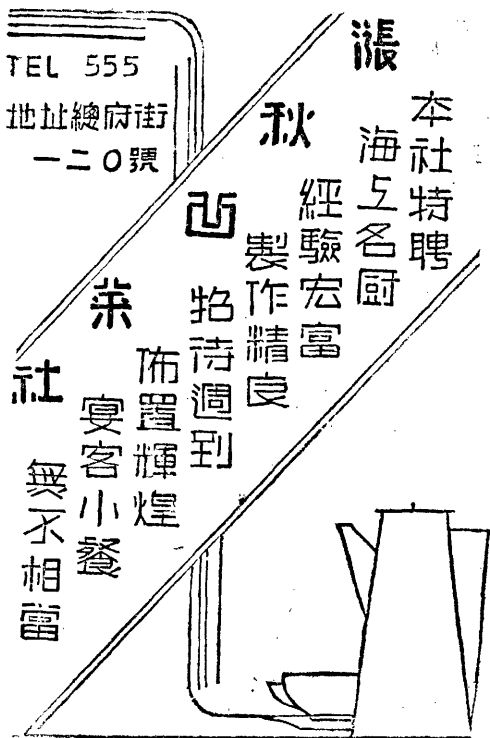 TEL 555
地址總府街
一二0號
漲秋西菜社
本社特聘
海上名厨
經驗宏富
製作精良
招待週到
佈置輝煌
宴客小餐
無不相當